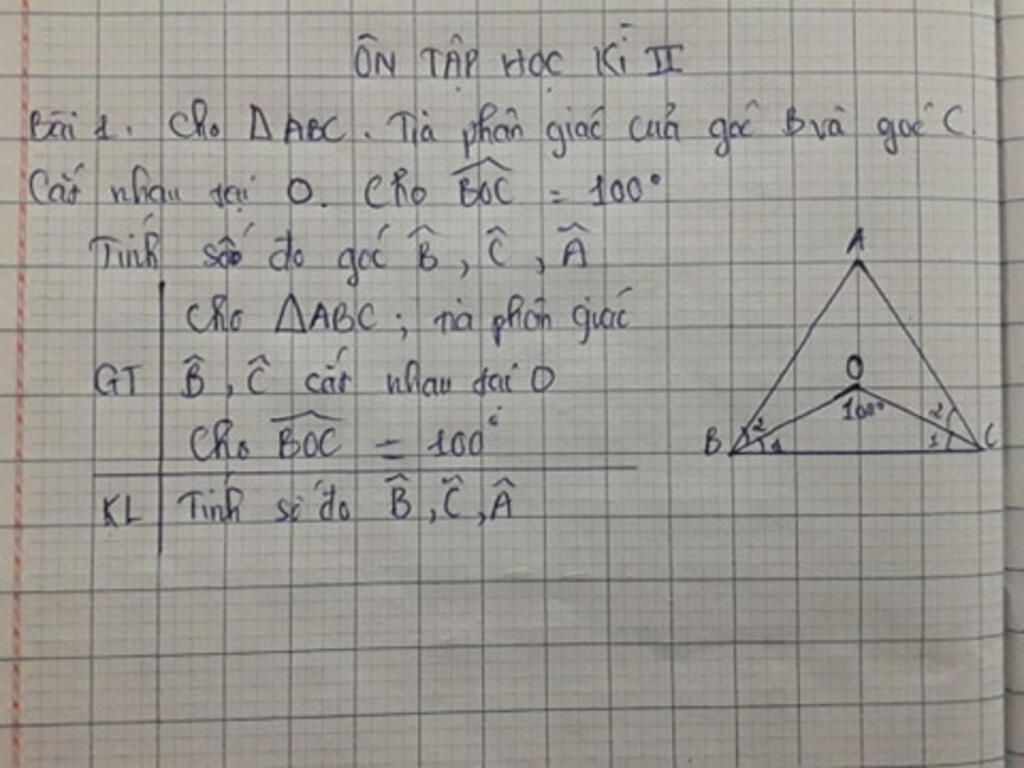 ÔN TẬP HỌC KÌ II
Bài 1. Cho △ABC. Tia phân giác của góc B và góc C
Cắt nhau tại O. Cho BOC = 100°
Tính số đo góc B̂, Ĉ, Â
GT
Cho △ABC; tia phân giác
B̂, Ĉ cắt nhau tại O
Cho BOC = 100°
KL
Tính số đo B̂, Ĉ, Â
A
O
100°
B
2
1
2
1
C